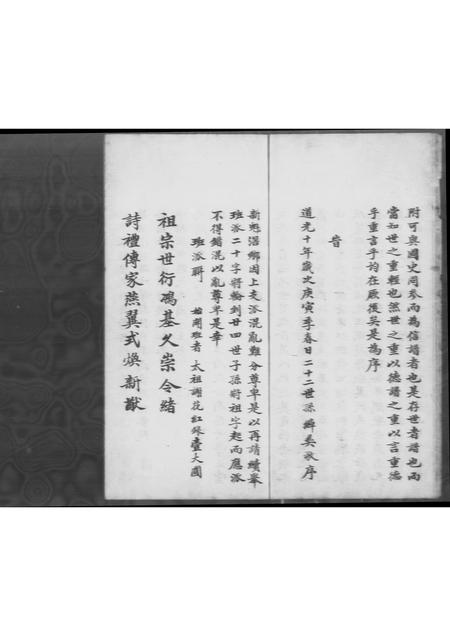 附可與國史同參而為信譜者也是存世者譜也而
當知世之重輕也然世之重以德譜之重以言重德
乎重言乎均在厥後矣是為序
音
道光十年歲次庚寅季春日二十二世孫 敬序
新 鄉因上支派混亂難分尊卑是以再請續舉
班派二十字將輪到廿四世子孫將祖字起而應派
不得錯混以亂尊卑是幸
班派聯
始用班者 太祖謝花紅銀壹大圓
祖宗世衍鴻基久崇令緒
詩禮傳家燕翼式煥新猷